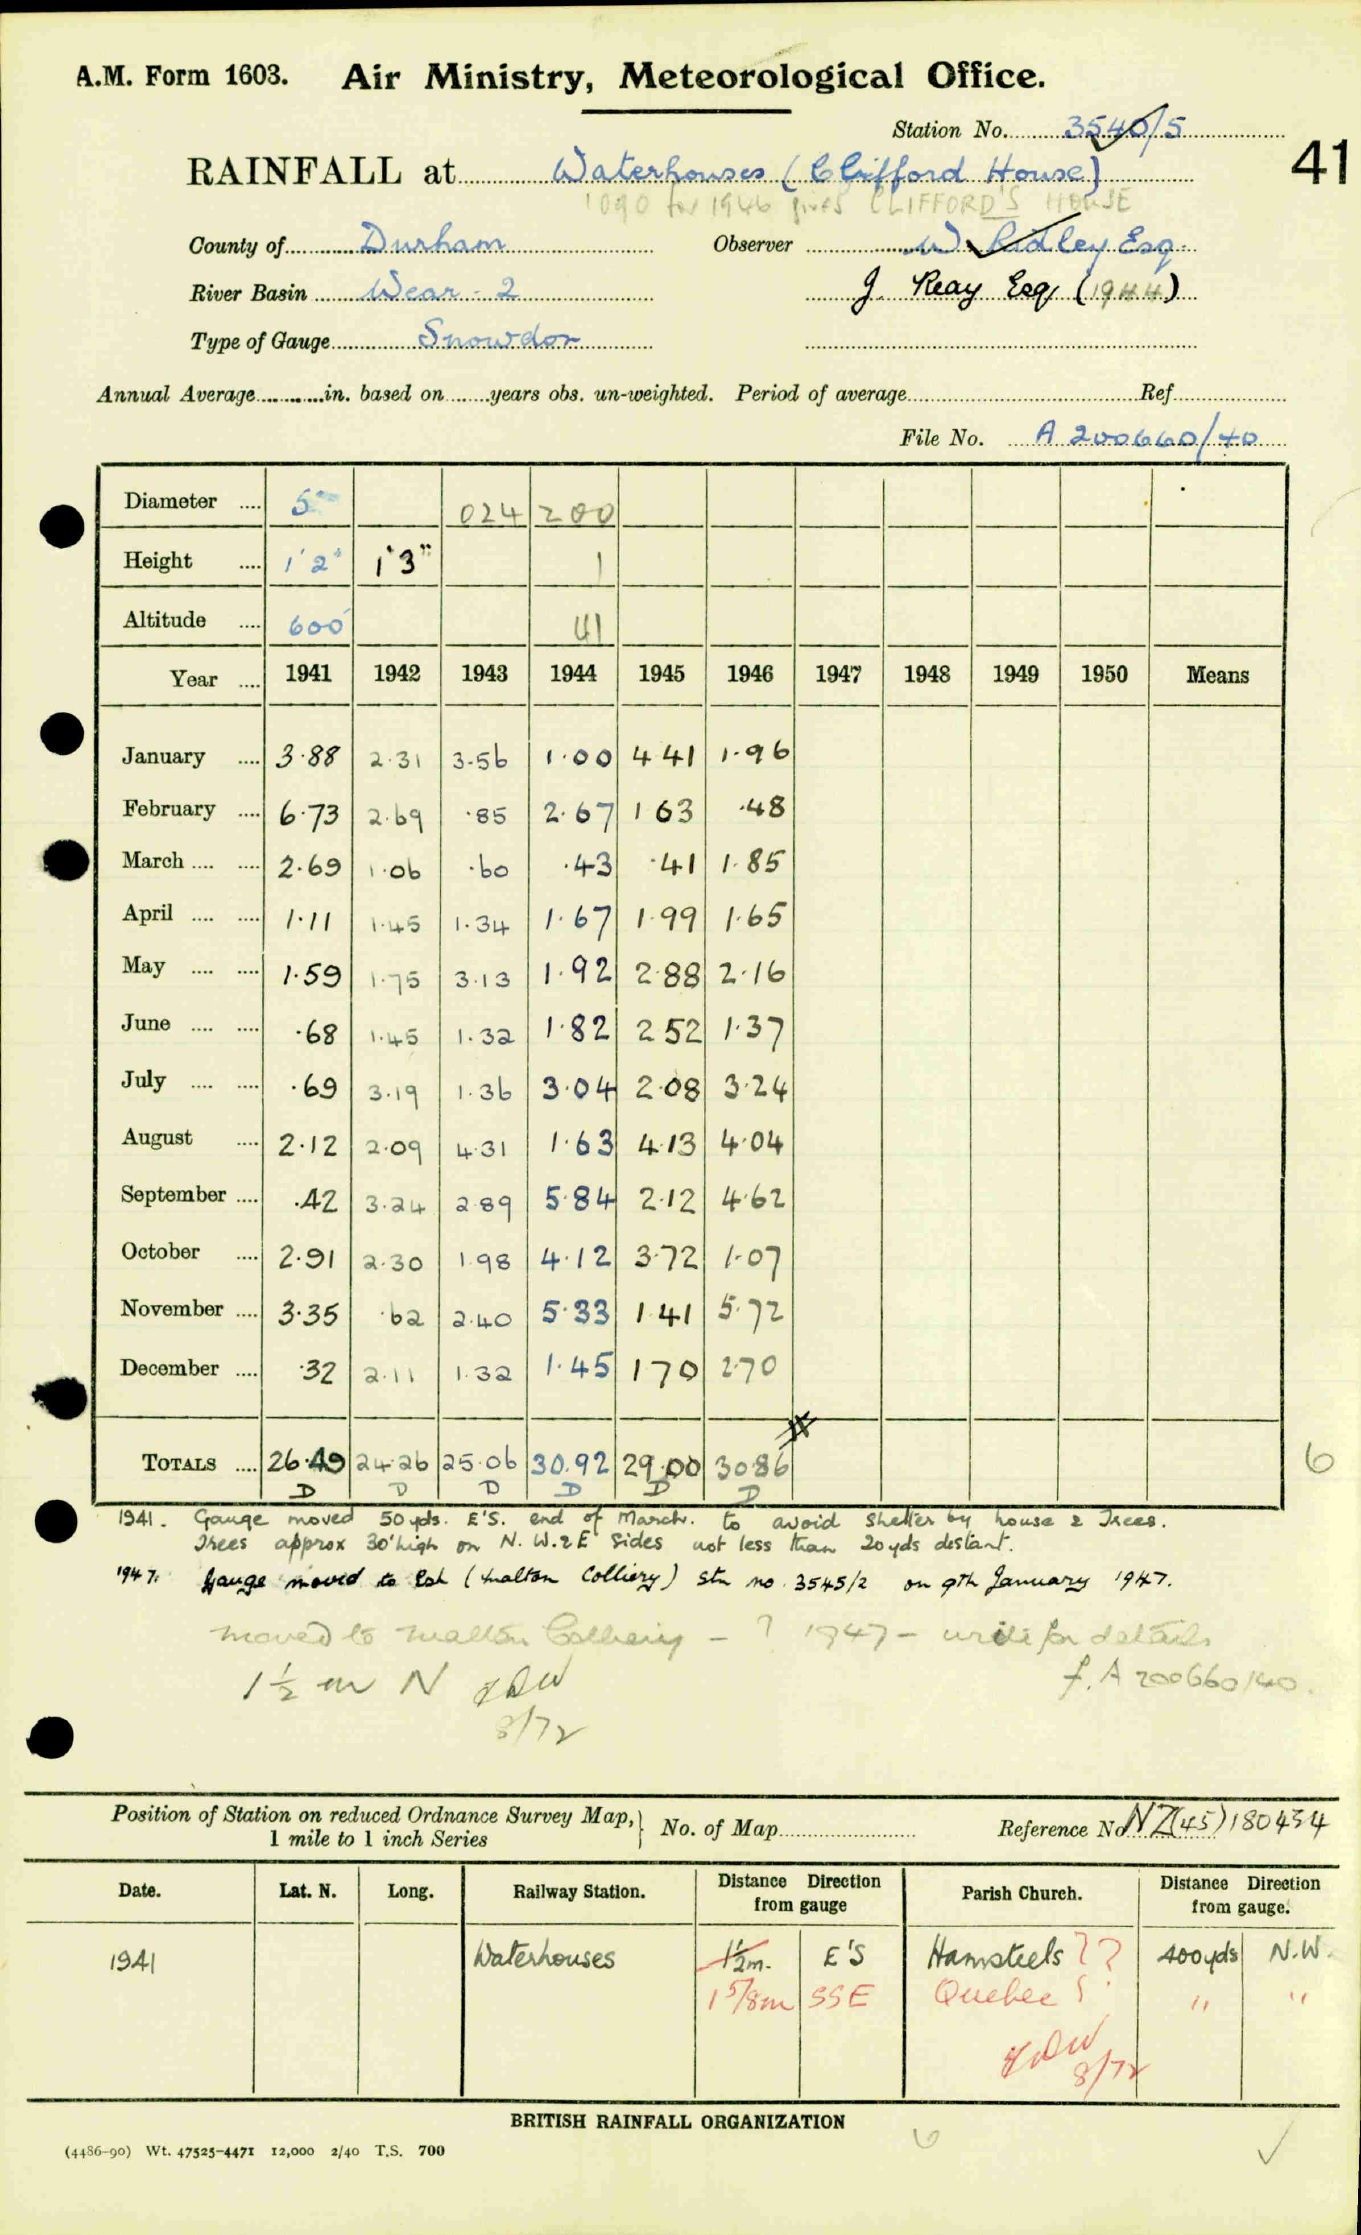 A.M. Form 1603. Air Ministry, Meteorological Office.
Station No. 3540/5
41
RAINFALL at Waterhouses (Clifford House)
1090 for 1946 gives CLIFFORD'S HOUSE
County of Durham Observer W. Ridley Esq.
River Basin Wear - 2 J. Reay Esq (1944)
Type of Gauge Snowdon
Annual Average in. based on years obs. un-weighted. Period of average Ref
File No. A 200660/40
Diameter 5" 024 200
Height 1'2" 1'3" 1
Altitude 600' 41
Year 1941 1942 1943 1944 1945 1946 1947 1948 1949 1950 Means
January 3.88 2.31 3.56 1.00 4 41 1.96
February 6.73 2.69 .85 2.67 1 63 .48
March 2.69 1.06 .60 .43 .41 1.85
April 1.11 1.45 1.34 1.67 1.99 1.65
May 1.59 1.75 3.13 1.92 2.88 2.16
June .68 1.45 1.32 1.82 2 52 1.37
July .69 3.19 1.36 3.04 2.08 3.24
August 2.12 2.09 4.31 1.63 4.13 4.04
September .42 3.24 2.89 5.84 2.12 4.62
October 2.91 2.30 1.98 4.12 3.72 1.07
November 3.35 .62 2.40 5.33 1.41 5.72
December .32 2.11 1.32 1.45 1 70 2.70
TOTALS 26.49 24.26 25.06 30.92 29.00 30.86
D D D D D D
6
1941. Gauge moved 50 yds. E'S. end of March. to avoid shelter by house & Trees.
Trees approx 30' high on N. W. & E sides not less than 20 yds distant.
1947. Gauge moved to Esh (Malton Colliery) Stn no. 3545/2 on 9th January 1947.
moved to Malton Colliery - ? 1947 - write for details
f. A 200660/40.
1 1/2 m N
8/72
Position of Station on reduced Ordnance Survey Map, 1 mile to 1 inch Series } No. of Map Reference No NZ(45)180434
Date. Lat. N. Long. Railway Station. Distance Direction from gauge Parish Church. Distance Direction from gauge.
1941 Waterhouses 1 1/2 m. E'S Hamsteels ?? 400 yds N.W.
1 5/8 m SSE Quebec ? " "
8/72
BRITISH RAINFALL ORGANIZATION
6
(4486-90) Wt. 47525-4471 12,000 2/40 T.S. 700